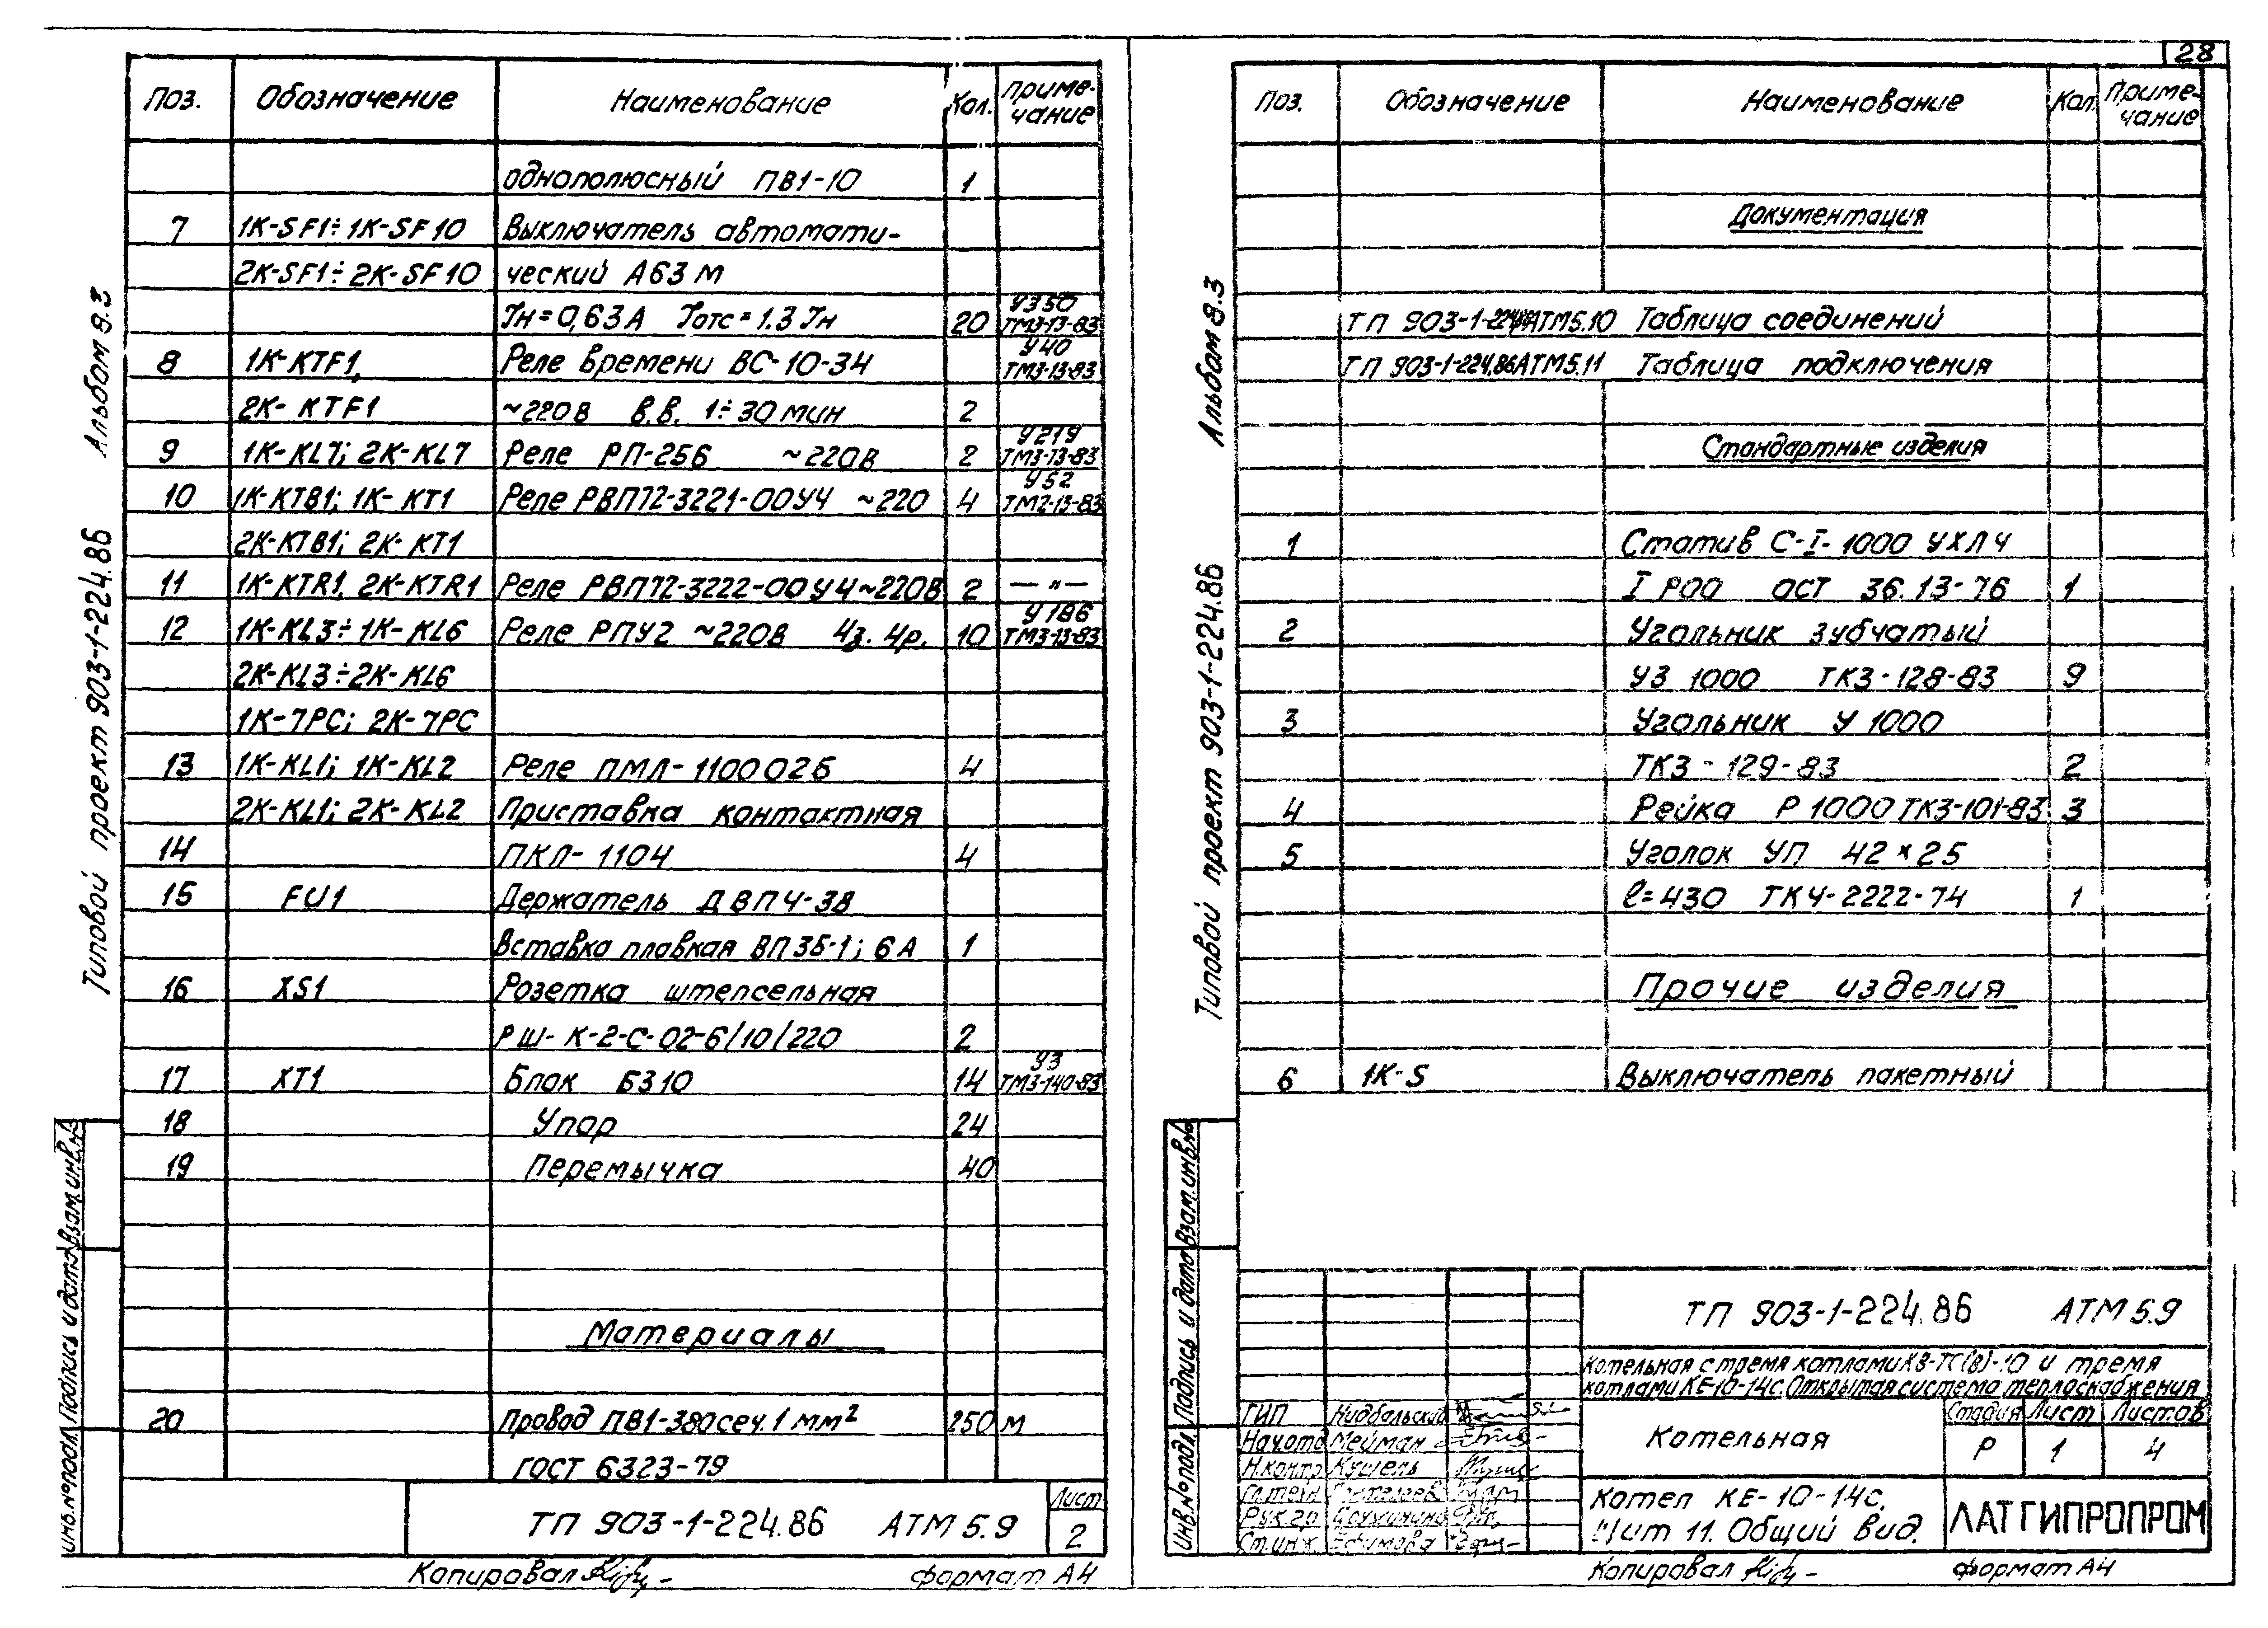 28
Поз. Обозначение Наименование Кол. Приме-чание
однополюсный ПВ1-10 1
7 1К-SF1÷1К-SF10 Выключатель автомати-
2К-SF1÷2К-SF10 ческий А63М
Iн=0,63А Iотс=1.3 Iн 20 У350 ТМ3-13-83
8 1К-KTF1, Реле времени ВС-10-34 У40 ТМ3-13-83
2К-KTF1 ~220В в.в. 1÷30мин 2
9 1К-KL7; 2К-KL7 Реле РП-256 ~220В 2 У219 ТМ3-13-83
10 1К-КТВ1; 1К-КТ1 Реле РВП72-3221-00У4 ~220 4 У52 ТМ2-13-83
2К-КТВ1; 2К-КТ1
11 1К-KTR1, 2К-KTR1 Реле РВП72-3222-00У4~220В 2 —"—
12 1К-KL3÷1К-KL6 Реле РПУ2 ~220В 4з. 4р. 10 У186 ТМ3-13-83
2К-KL3÷2К-KL6
1К-7РС; 2К-7РС
13 1К-KL1; 1К-KL2 Реле ПМЛ-110002Б 4
2К-KL1; 2К-KL2 Приставка контактная
14 ПКЛ-1104 4
15 FU1 Держатель ДВП4-38
Вставка плавкая ВП3Б-1; 6А 1
16 XS1 Розетка штепсельная
РШ-К-2-С-02-6/10/220 2
17 XT1 Блок Б310 14 У3 ТМ3-140-83
18 Упор 24
19 Перемычка 40
Материалы
20 Провод ПВ1-380 сеч. 1 мм² 250 м
ГОСТ 6323-79
ТП 903-1-224.86 АТМ 5.9 Лист 2
Копировал формат А4
Альбом 9.3
Типовой проект 903-1-224.86
Инв.№подл. Подпись и дата Взам.инв.№
Поз. Обозначение Наименование Кол. Приме-чание
Документация
ТП 903-1-224.86АТМ5.10 Таблица соединений
ТП 903-1-224.86АТМ5.11 Таблица подключения
Стандартные изделия
1 Статив С-I-1000 УХЛ4
I Р00 ОСТ 36.13-76 1
2 Угольник зубчатый
УЗ 1000 ТК3-128-83 9
3 Угольник У 1000
ТК3-129-83 2
4 Рейка Р1000 ТК3-101-83 3
5 Уголок УП 42×25
ℓ=430 ТК4-2222-74 1
Прочие изделия
6 1К-S Выключатель пакетный
ТП 903-1-224.86 АТМ 5.9
Котельная с тремя котлами КВ-ТС(В)-10 и тремя
котлами КЕ-10-14с. Открытая система теплоснабжения
ГИП Нидбальский
Нач.отд Мейман
Н.контр Кушель
Гл.техн
Рук.гр
Ст.инж Ефимова
Котельная
Стадия Лист Листов
Р 1 4
Котел КЕ-10-14с.
Щит 11. Общий вид.
ЛАТГИПРОПРОМ
Копировал формат А4
Альбом 8.3
Типовой проект 903-1-224.86
Инв.№подл. Подпись и дата Взам.инв.№